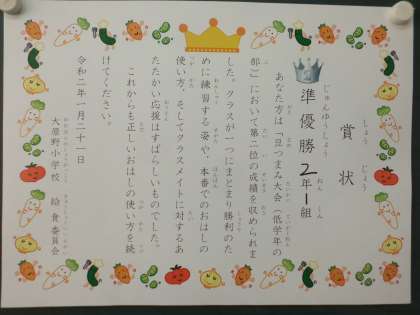 賞状
しょうじょう
準優勝 2年1組
じゅんゆうしょう ねん くみ
あなた方は「豆つまみ大会（低学年の
部）」において第二位の成績を収められま
した。クラスが一つにまとまり勝利のた
めに練習する姿や、本番でのおはしの
使い方、そしてクラスメイトに対するあ
たたかい応援はすばらしいものでした。
これからも正しいおはしの使い方を続
けてください。
令和二年一月二十一日
大原野小学校 給食委員会